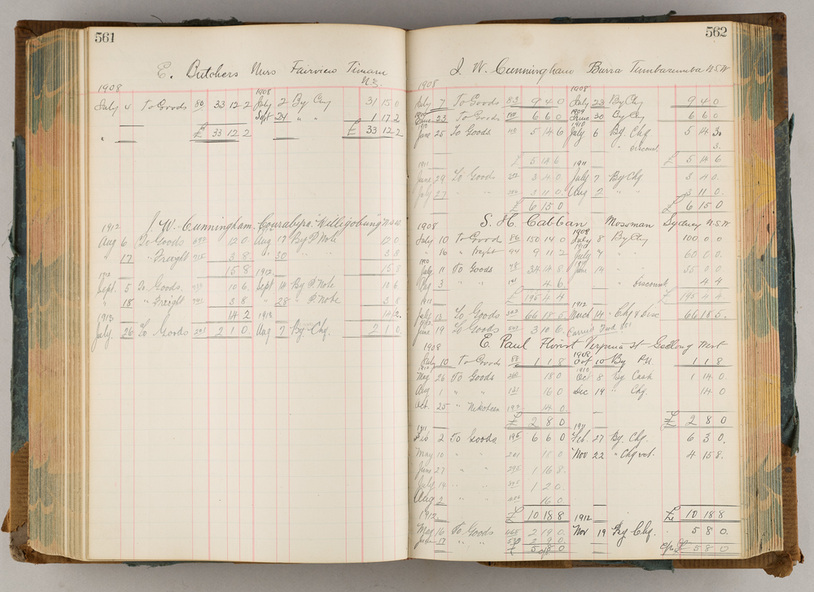 561
E. Butchers Nurs Fairview Timaru
N.Z.
1908 1908
July 4 To Goods 33 12 2 July 2 By Chq 31 15 0
Sept 24 " " 1 17 2
£ 33 12 2 £ 33 12 2
1912 J. W. Cunningham, Willigobung N.S.W
Aug 6 To Goods 12 0 Aug 17 By P Note 12 0
17 " Freight 3 8 30 3 8
15 8 1912 15 8
Sept. 5 To Goods 10 6 Sept 14 By P Note 10 6
18 " Freight 3 8 28 " P Note 3 8
1913 14 2 1913 14 2
July 26 To Goods 2 1 0 Aug 7 By Chq. 2 1 0
562
J. W. Cunningham Burra Tumbarumba N.S.W
1908 1908
July 7 To Goods 9 4 0 July 23 By Chq 9 4 0
June 23 To Goods 6 6 0 June 30 By Chq 6 6 0
June 25 To Goods 5 14 6 July 6 By Chq
" discount 3
1911 £ 5 14 6 1911 £ 5 14 6
June 29 To Goods 3 4 0 July 7 By Chq 3 4 0
July 27 " " 3 11 0 Aug 3 11 0
£ 6 15 0 £ 6 15 0
S. H. Cabban Mosman Sydney N.S.W
1908
July 10 To Goods 150 14 0 July 8 By Chq 100 0 0
" 16 " Freight 9 11 2 July 60 0 0
July 11 To Goods 34 14 8 35 0 0
4 6 " discount 4 4
£ 195 4 4 £ 195 4 4
July 13 To Goods 66 18 5 March 14 " Chq & Disc 66 18 5
June 19 To Goods 3 10 6
E. Paul Florist Virginia St Geelong West
1908 1908
July 10 To Goods 1 1 8 Oct 10 By PN 1 1 8
May 26 To Goods 18 0 Oct 8 By Cash 1 14 0
Aug 1 " " 16 0 Dec 19 " Chq 14 0
Oct. 25 " 14 0
£ 2 8 0 £ 2 8 0
1911 1911
2 To Goods 195 6 6 0 27 By Chq. 6 3 0
May 10 " " 11 0 Nov 22 " Chq 4 15 8
June 27 " " 1 16 8
July 14 " " 1 2 0
Aug 2 16 0
£ 10 18 8 1912 £ 10 18 8
May 16 To Goods 2 19 0 Nov 19 By Chq. 5 8 0
June 2 9 0
£ 5 8 0 £ 5 8 0